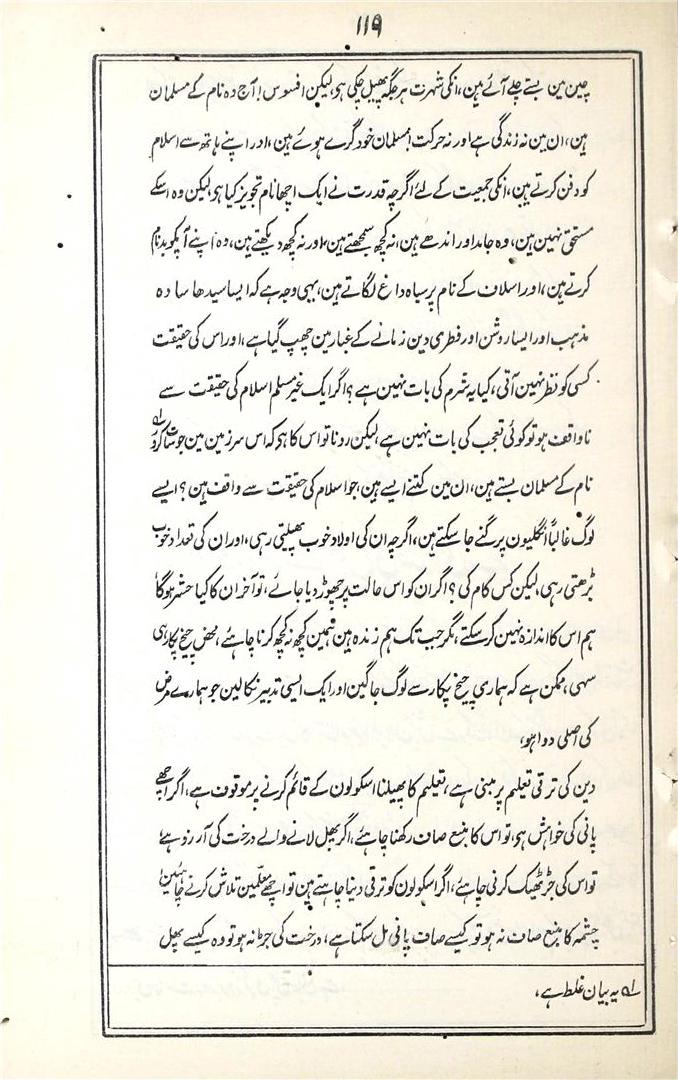 ۱۱۹
چین مین بستے چلے آئے ہین، انکی شہرت ہر جگہ پھیل چکی ہو، لیکن افسوس! آج وہ نام کے مسلمان
ہین، ان مین نہ زندگی ہے اور نہ حرکت! مسلمان خود گرے ہوئے ہین، اور اپنے ہاتھ سے اسلام
کو دفن کرتے ہین، انکی جمعیت کے لئے اگرچہ قدرت نے ایک اچھا نام تجویز کیا ہو، لیکن وہ اسکے
مستحق نہین ہین، وہ جامد اور اندھے ہین، نہ کچھ سمجھتے ہین، اور نہ کچھ دیکھتے ہین، وہ اپنے آپکو بدنام
کرتے ہین، اور اسلاف کے نام پر سیاہ داغ لگاتے ہین، یہی وجہ ہے کہ ایسا سیدھا سادہ
مذہب اور ایسا روشن اور فطری دین زمانے کے غبار مین چھپ گیا ہے، اور اس کی حقیقت
کسی کو نظر نہین آتی، کیا یہ شرم کی بات نہین ہے؟ اگر ایک غیر مسلم اسلام کی حقیقت سے
ناواقف ہو تو کوئی تعجب کی بات نہین ہے، لیکن رونا تو اس کا ہو کہ اس سرزمین مین جو سات کرور ؎۱
نام کے مسلمان بستے ہین، ان مین کتنے ایسے ہین، جو اسلام کی حقیقت سے واقف ہین؟ ایسے
لوگ غالباً انگلیون پر گنے جا سکتے ہین، اگرچہ ان کی اولاد خوب پھیلتی رہی، اور ان کی تعداد خوب
بڑھتی رہی، لیکن کس کام کی؟ اگر ان کو اس حالت پر چھوڑ دیا جائے، تو آخر ان کا کیا حشر ہوگا
ہم اس کا اندازہ نہین کر سکتے، مگر جب تک ہم زندہ ہین ہمین کچھ نہ کچھ کرنا چاہئے، محض چیخ پکار ہی
سہی، ممکن ہے کہ ہماری چیخ پکار سے لوگ جاگین اور ایک ایسی تدبیر نکالین جو ہمارے مرض
کی اصلی دوا ہو،
دین کی ترقی تعلیم پر مبنی ہے، تعلیم کا پھیلنا اسکولون کے قائم کرنے پر موقوف ہے، اگر اچھے
پانی کی خواہش ہو، تو اس کا منبع صاف رکھنا چاہئے، اگر پھل لانے والے درخت کی آرزو ہے
تو اس کی جڑ ٹھیک کرنی چاہئے، اگر اسکولون کو ترقی دینا چاہتے ہین تو اچھے معلمین تلاش کرنے چاہئین
چشمہ کا منبع صاف نہ ہو تو کیسے صاف پانی مل سکتا ہے، درخت کی جڑ نہ ہو تو وہ کیسے پھل
؎۱ یہ بیان غلط ہے،